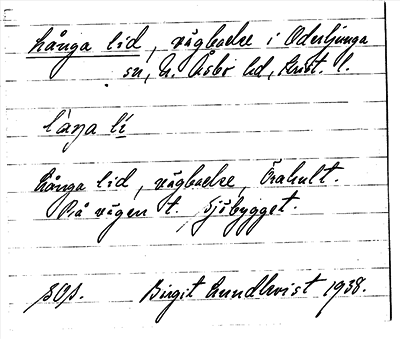 Långa lid, vägbacke i Oderljunga
sn, N. Åsbo hd, Krist. l.
låŋa lí
Långa lid, vägbacke, Örahult.
På vägen t. Sjöbygget.
Birgit Lundkvist 1938.